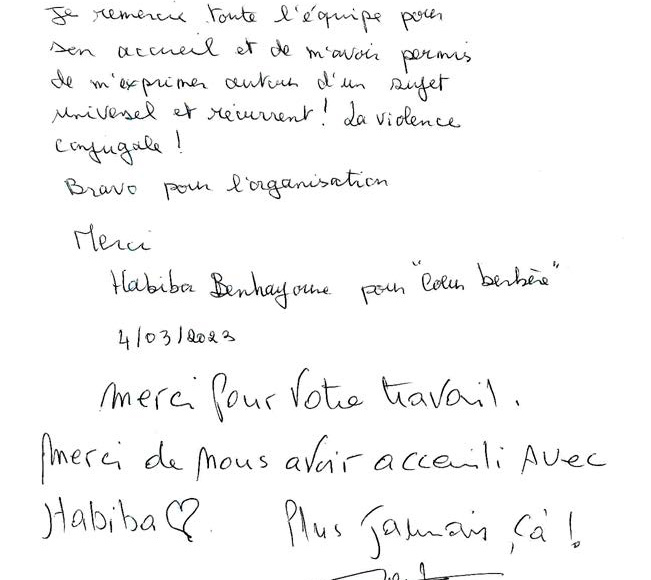 Je remercie toute l'équipe pour
son accueil et de m'avoir permis
de m'exprimer autour d'un sujet
universel et récurrent ! La violence
conjugale !
Bravo pour l'organisation
Merci
Habiba Benhayoune pour "Coeur berbère"
4/03/2023
Merci Pour Votre travail.
Merci de nous avoir acceuili Avec
Habiba
Plus Jamais ça !